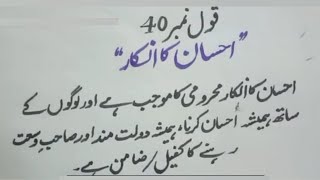 قول نمبر 40
"احسان کا انکار"
احسان کا انکار محرومی کا موجب ہے اور لوگوں کے
ساتھ ہمیشہ احسان کرنا، ہمیشہ دولت مند اور صاحبِ وسعت
رہنے کا کفیل/ضامن ہے۔